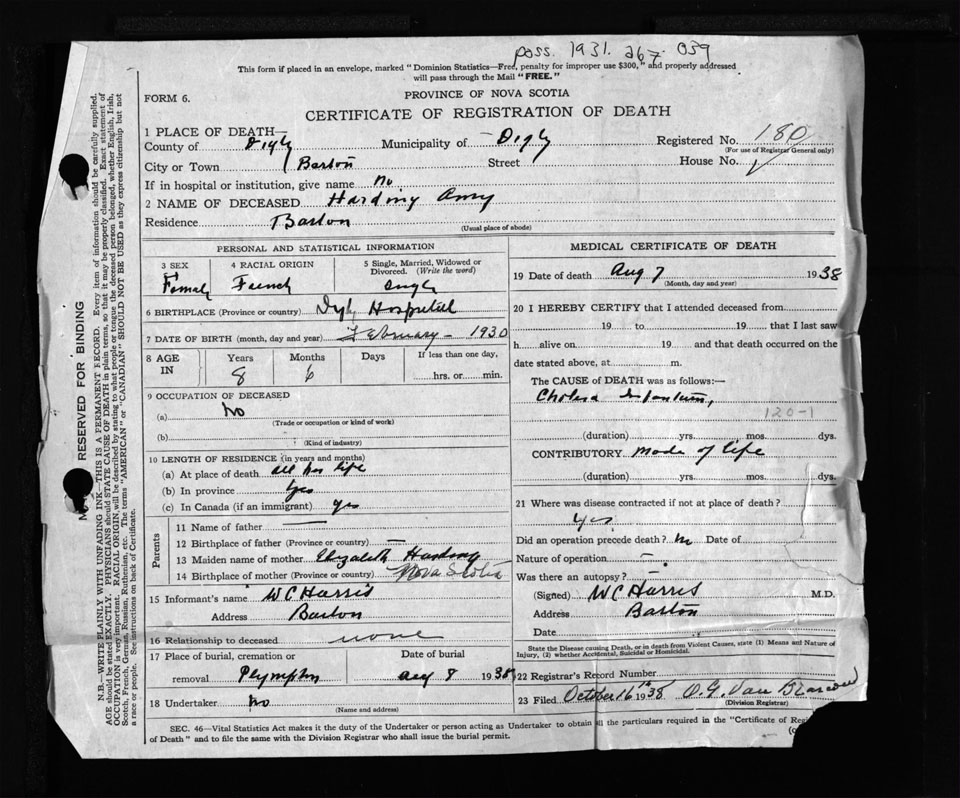 pass. 1931. 267. 039
This form if placed in an envelope, marked "Dominion Statistics—Free, penalty for improper use $300," and properly addressed
will pass through the Mail "FREE."
FORM 6.
PROVINCE OF NOVA SCOTIA
CERTIFICATE OF REGISTRATION OF DEATH
1 PLACE OF DEATH—
County of Digby Municipality of Digby Registered No. 180
(For use of Registrar General only)
City or Town Barton Street House No.
If in hospital or institution, give name No
2 NAME OF DECEASED Harding Amy
Residence Barton
(Usual place of abode)
PERSONAL AND STATISTICAL INFORMATION
3 SEX 4 RACIAL ORIGIN 5 Single, Married, Widowed or Divorced. (Write the word)
Female French Single
6 BIRTHPLACE (Province or country) Digby Hospital
7 DATE OF BIRTH (month, day and year) February - 1930
8 AGE IN Years Months Days If less than one day,
8 6 hrs. or min.
9 OCCUPATION OF DECEASED
(a) No
(Trade or occupation or kind of work)
(b)
(Kind of industry)
10 LENGTH OF RESIDENCE (in years and months)
(a) At place of death all her life
(b) In province yes
(c) In Canada (if an immigrant) yes
Parents
11 Name of father —
12 Birthplace of father (Province or country) —
13 Maiden name of mother Elizabeth Harding
14 Birthplace of mother (Province or country) Nova Scotia
15 Informant's name W C Harris
Address Barton
16 Relationship to deceased none
17 Place of burial, cremation or removal Plympton Date of burial Aug 8 1938
18 Undertaker No
(Name and address)
MEDICAL CERTIFICATE OF DEATH
19 Date of death Aug 7 1938
(Month, day and year)
20 I HEREBY CERTIFY that I attended deceased from
19 to 19 that I last saw
h alive on 19 and that death occurred on the
date stated above, at m.
The CAUSE of DEATH was as follows:—
Cholera Infantum,
120-1
(duration) yrs. mos. dys.
CONTRIBUTORY Mode of life
(duration) yrs. mos. dys.
21 Where was disease contracted if not at place of death?
Yes
Did an operation precede death? No Date of
Nature of operation —
Was there an autopsy? —
(Signed) W C Harris M.D.
Address Barton
Date
State the Disease causing Death, or in death from Violent Causes, state (1) Means and Nature of
Injury, (2) whether Accidental, Suicidal or Homicidal.
22 Registrar's Record Number
23 Filed October 16th 1938
(Division Registrar)
SEC. 46—Vital Statistics Act makes it the duty of the Undertaker or person acting as Undertaker to obtain all the particulars required in the "Certificate of
of Death" and to file the same with the Division Registrar who shall issue the burial permit.
RESERVED FOR BINDING
N.B.—WRITE PLAINLY WITH UNFADING INK—THIS IS A PERMANENT RECORD. Every item of information should be carefully supplied.
AGE should be stated EXACTLY. PHYSICIANS should STATE CAUSE OF DEATH in plain terms, so that it may be properly classified. Exact statement of
OCCUPATION is very important. RACIAL ORIGIN, will be described by stating to what people or tongue the deceased person belonged, whether English, Irish,
Scotch, French, German, Russian, Ruthenian, etc. The terms "AMERICAN" or "CANADIAN" SHOULD NOT BE USED as they express citizenship but not
a race or people. See instructions on back of Certificate.